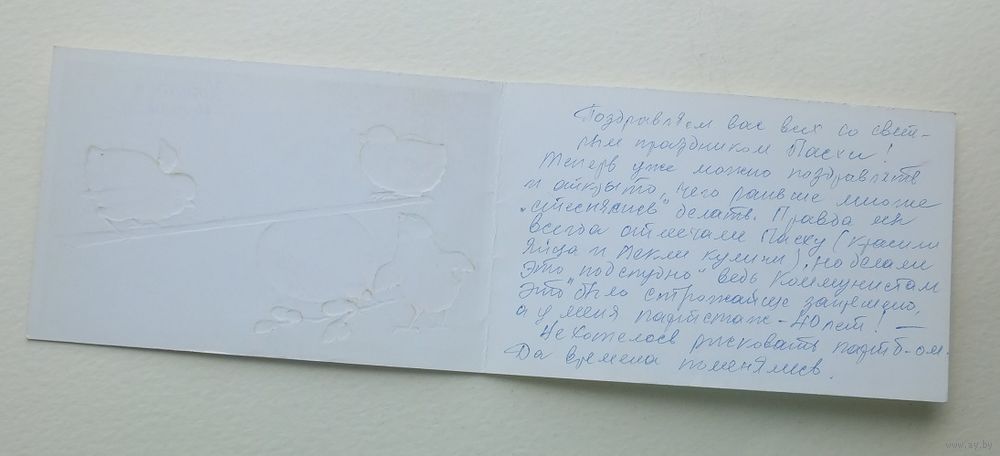 Поздравляем вас всех со свет-
лым праздником Пасхи!
Теперь уже можно поздравлять
и открыто, чего раньше многие
„стеснялись" делать. Правда мы
всегда отмечали Пасху (красили
яйца и пекли куличи), но делали
это „подспудно" ведь коммунистам
это было строжайше запрещено,
а у меня партстаж - 40 лет! —
Не хотелось рисковать партб-ом.
Да времена поменялись.
www.ay.by